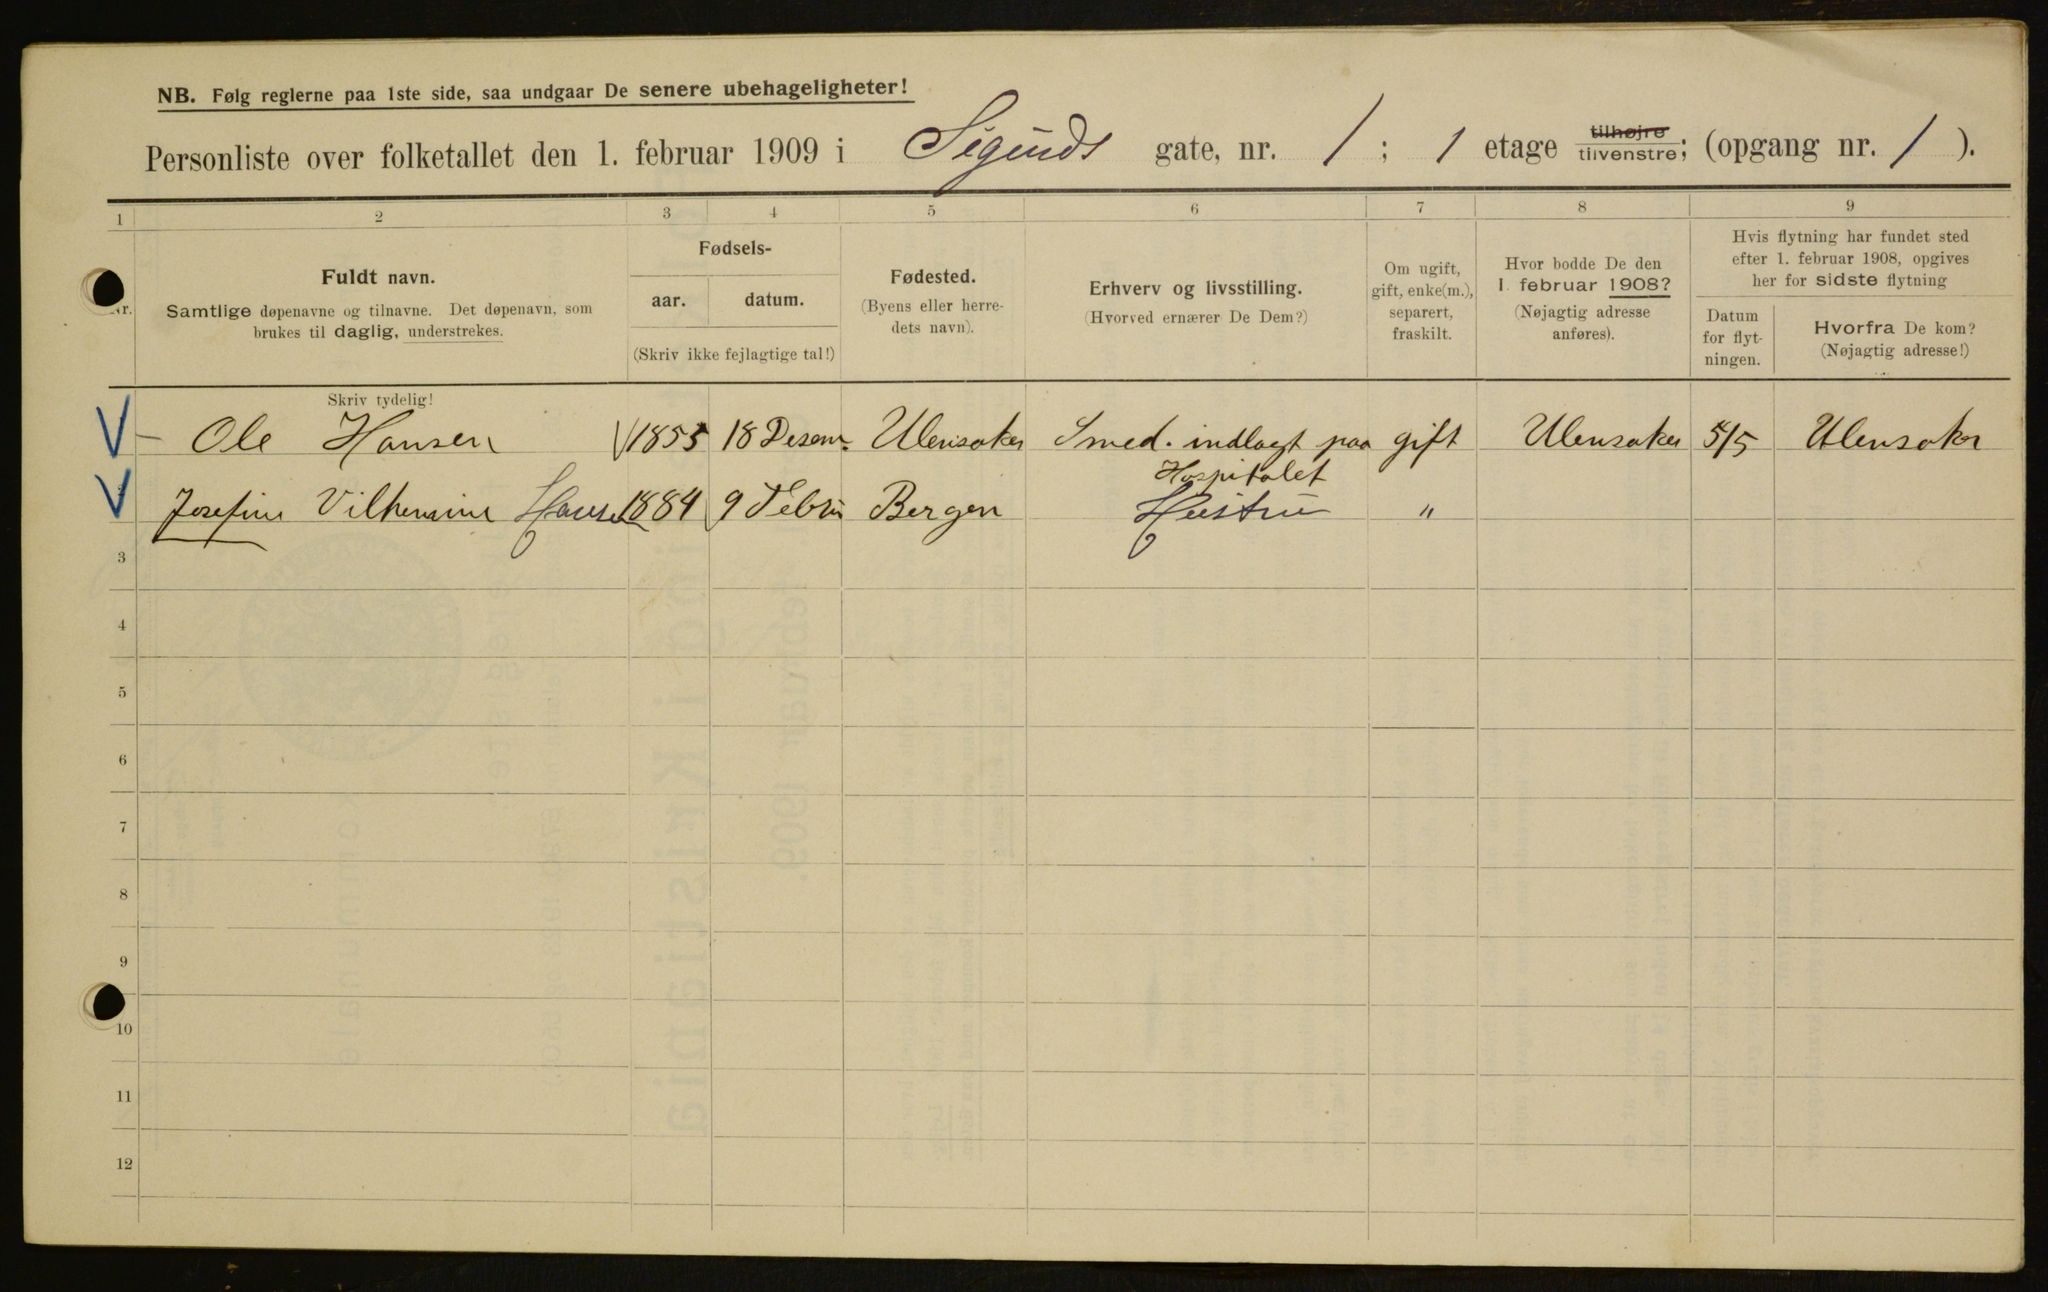 NB. Følg reglerne paa 1ste side, saa undgaar De senere ubehageligheter!
Personliste over folketallet den 1. februar 1909 i Siguds gate, nr. 1; 1 etage tilhøjre tilvenstre; (opgang nr. 1).
1 2 3 4 5 6 7 8 9
Nr.
Fuldt navn.
Samtlige døpenavne og tilnavne. Det døpenavn, som
brukes til daglig, understrekes.
Skriv tydelig!
Fødsels-
aar. datum.
(Skriv ikke fejlagtige tal!)
Fødested.
(Byens eller herre-
dets navn).
Erhverv og livsstilling.
(Hvorved ernærer De Dem?)
Om ugift,
gift, enke(m.),
separert,
fraskilt.
Hvor bodde De den
1. februar 1908?
(Nøjagtig adresse
anføres).
Hvis flytning har fundet sted
efter 1. februar 1908, opgives
her for sidste flytning
Datum
for flyt-
ningen.
Hvorfra De kom?
(Nøjagtig adresse!)
V Ole Hansen V 1855 18 Desem. Ulensaker Smed. indlagt paa gift Ulensaker 5/5 Ulensaker
Hospitalet
V Josefine Vilhemine Hansen 1884 9 Febru Bergen Hustru "
3
4
5
6
7
8
9
10
11
12